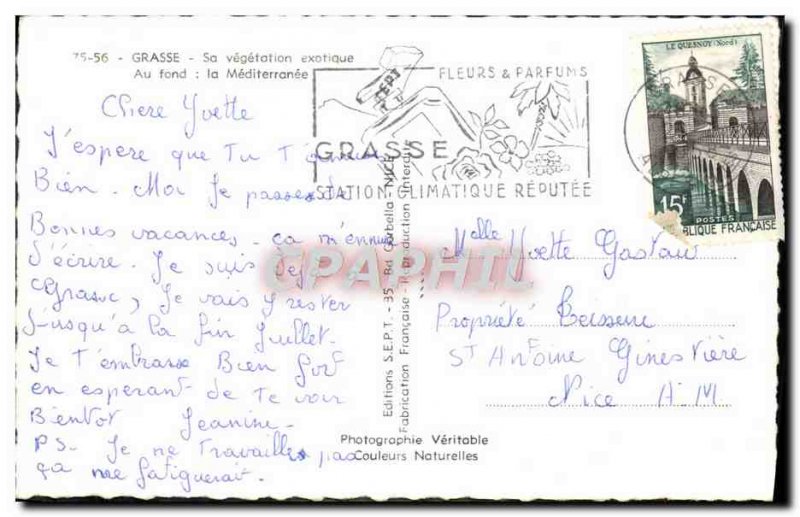 75-56 - GRASSE - Sa végétation exotique
Au fond : la Méditerranée
Chere Yvette
J'espere que Tu T'amuse
Bien. Moi Je passe de
Bonnes vacances. ça m'ennui
d'écrire. Je suis
Grasse, Je vais y rester
Jusqu'à la fin Juillet.
Je T'embrasse Bien fort
en esperant de Te voir
Bientot Jeanine.
PS. Je ne Travailles pas
ça me fatiguerait.
FLEURS & PARFUMS
GRASSE
STATION CLIMATIQUE RÉPUTÉE
LE QUESNOY (Nord)
GRASSE
15F
POSTES
RÉPUBLIQUE FRANÇAISE
CPAPHIL
Editions S.E.P.T. - 35, Bd Gorbella - NICE
Fabrication Française - Reproduction Interdite
Melle Yvette
Propriété
St Antoine Ginestière
Nice A-M
Photographie Véritable
Couleurs Naturelles